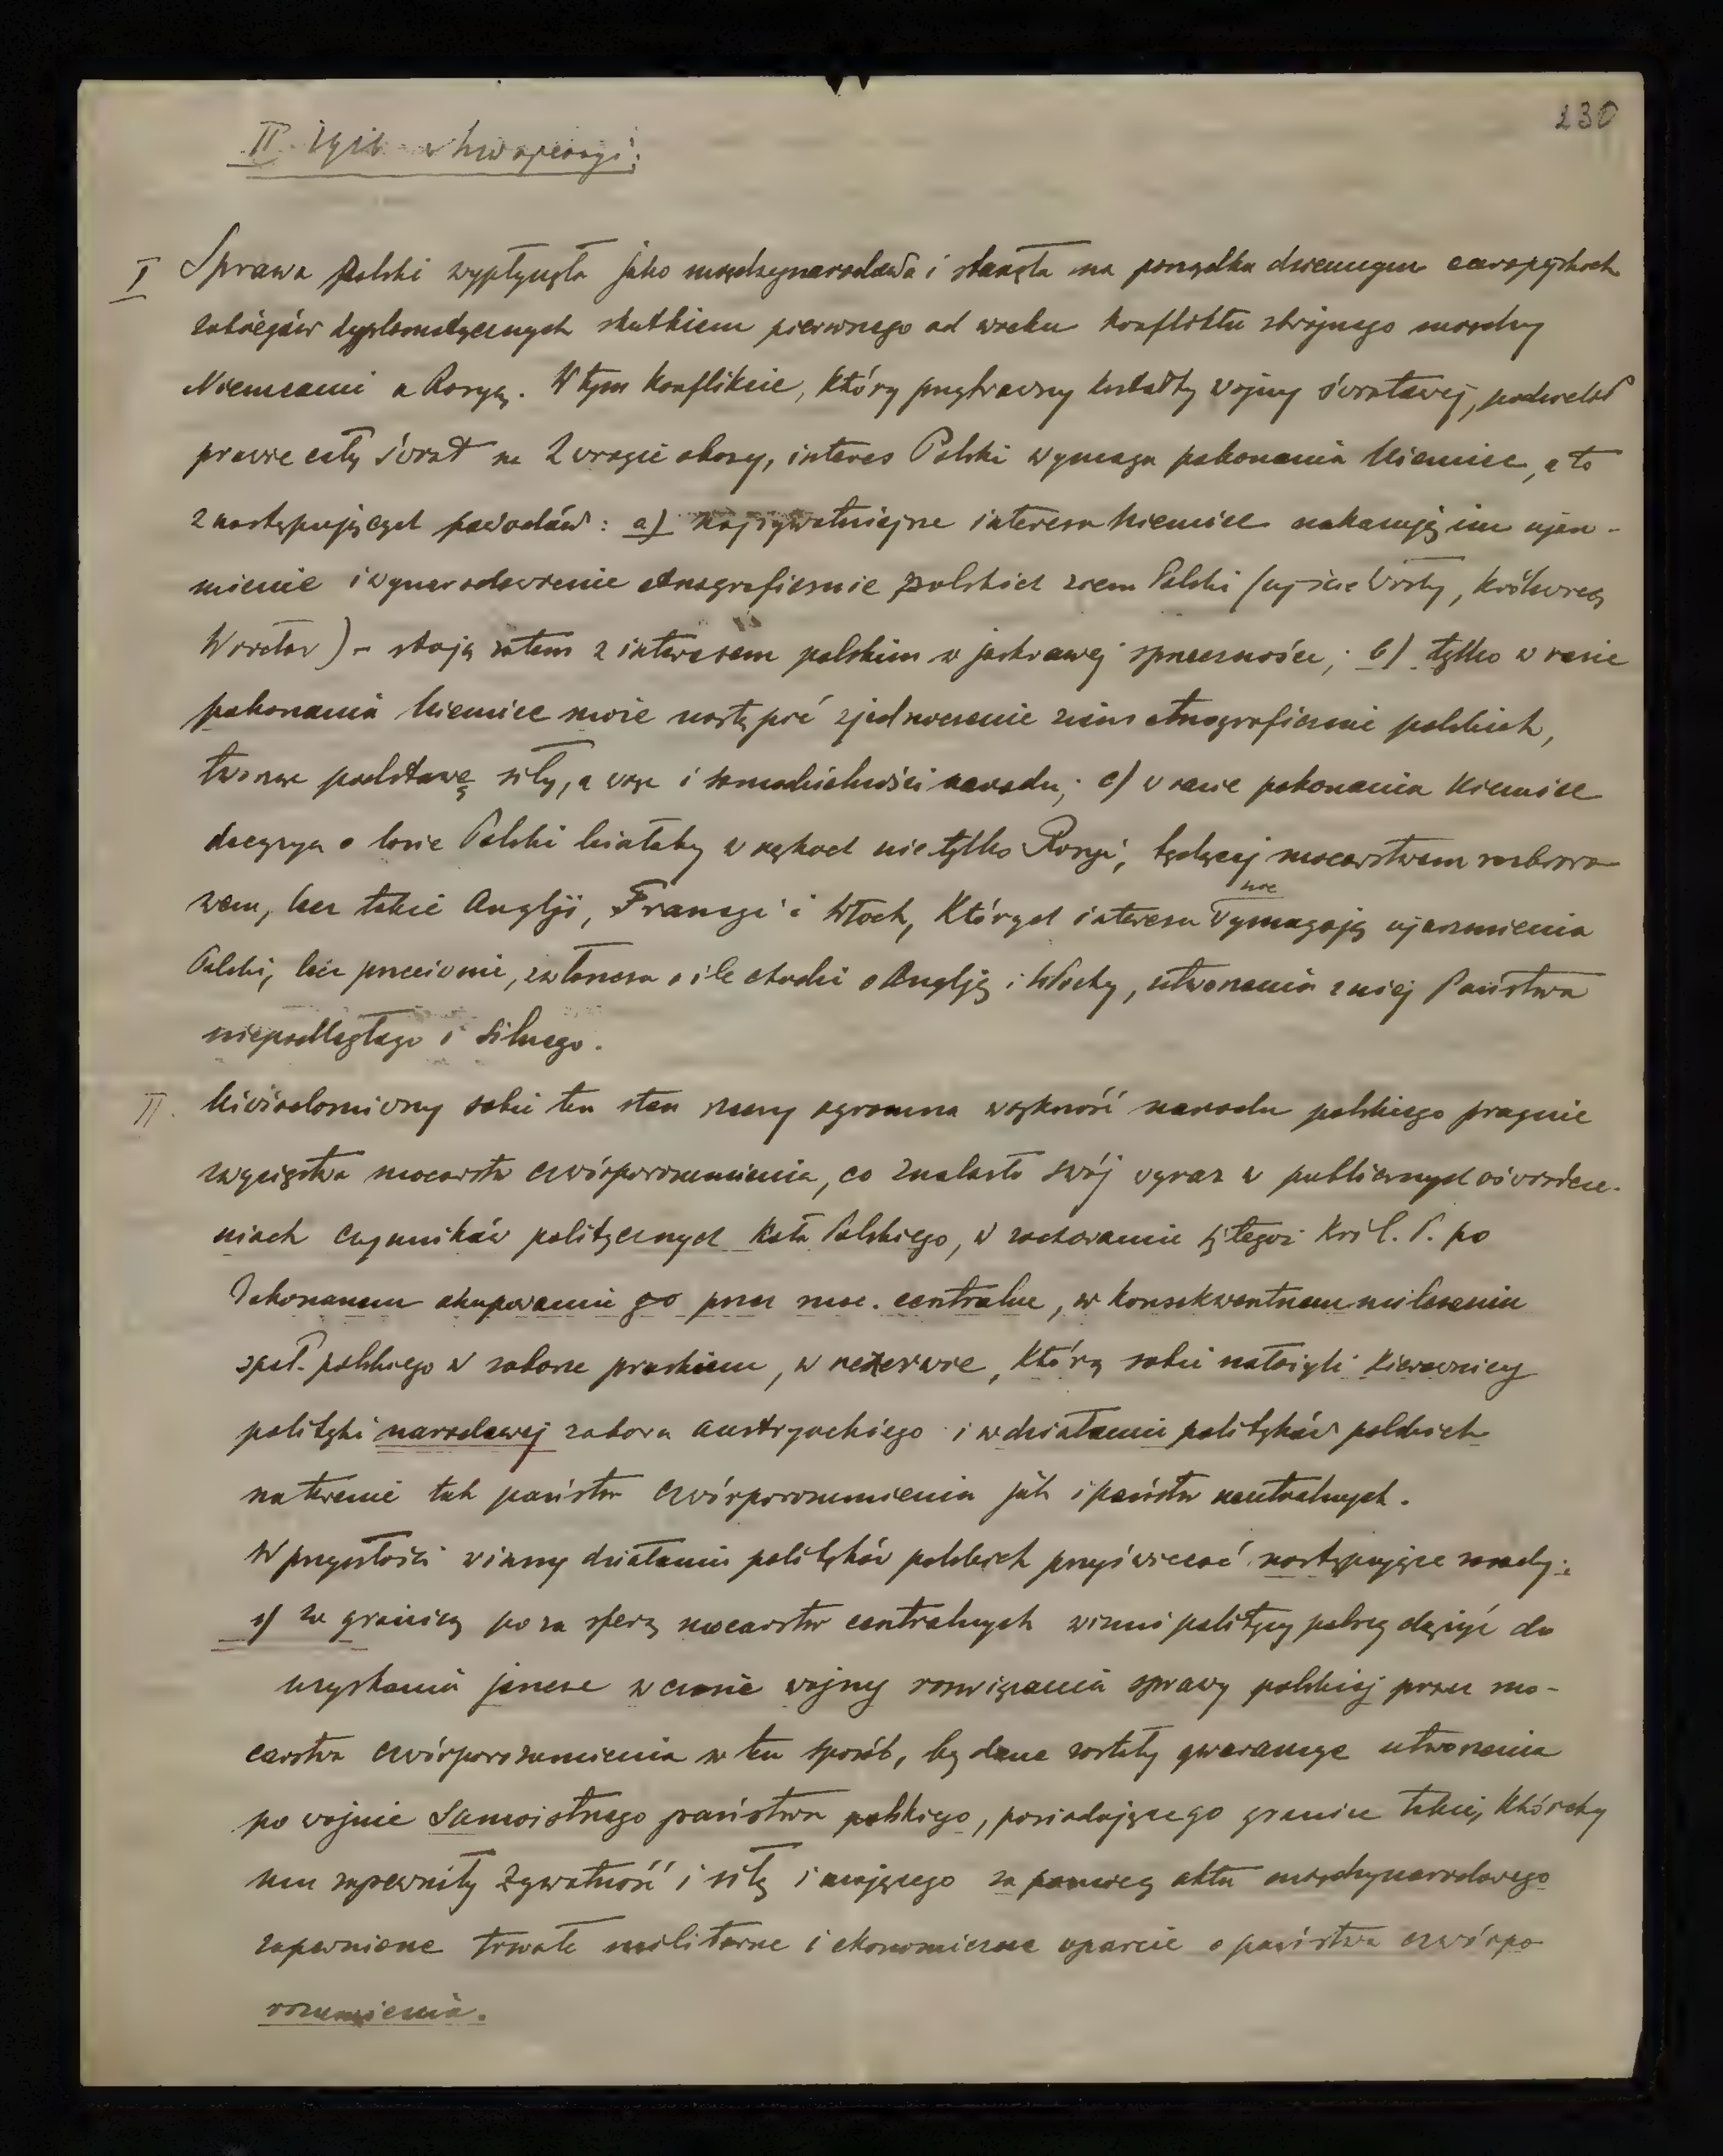 230
II
I Sprawa Polski wypłynęła jako międzynarodowa i stanęła na porządku dziennym europejskich
zabiegów dyplomatycznych skutkiem pierwszego od wieku konfliktu zbrojnego między
Niemcami a Rosyą. W tym konflikcie, który przybrawszy kształty wojny światowej, podzielił
prawie cały świat na 2 wrogie obozy, interes Polski wymaga pokonania Niemiec, a to
z następujących powodów: a) najżywotniejsze interesa Niemiec nakazują im ujarz-
mienie i wynarodowienie etnograficznie polskich ziem Polski (ujście Wisły, Królewiec,
Wrocław) – stoją zatem z interesem polskim w jaskrawej sprzeczności; b) tylko w razie
pokonania Niemiec może nastąpić zjednoczenie ziem etnograficznie polskich,
tworzące podstawę siły, a więc i samodzielności narodu; c) w razie pokonania Niemiec
decyzya o losie Polski leżałaby w rękach nie tylko Rosyi, będącej mocarstwem rozbioro-
wem, lecz także Anglji, Francyi i Włoch, których interesa nie wymagają ujarzmienia
Polski, lecz przeciwnie, zwłaszcza o ile chodzi o Anglję i Włochy, utworzenia z niej Państwa
niepodległego i silnego.
II. Uświadomiwszy sobie ten stan rzeczy ogromna większość narodu polskiego pragnie
zwycięstwa mocarstw czwórporozumienia, co znalazło swój wyraz w publicznych oświadcze-
niach czynników politycznych Koła Polskiego, w zachowaniu się tegoż Król. P. po
dokonanem okupowaniu go przez moc. centralne, w konsekwentnem milczeniu
społ. polskiego w zaborze pruskiem, w rezerwie, którą sobie nałożyli kierownicy
polityki narodowej zaboru austryackiego i w działaniu polityków polskich
na terenie tak państw czwórporozumienia jak i państw neutralnych.
W przyszłości winny działaniu polityków polskich przyświecać następujące zasady:
a) za granicą poza sferą mocarstw centralnych winni politycy polscy dążyć do
uzyskania jeszcze w czasie wojny rozwiązania sprawy polskiej przez mo-
carstwa czwórporozumienia w ten sposób, by dane zostały gwarancye utworzenia
po wojnie samoistnego państwa polskiego, posiadającego granice takie, któreby
mu zapewniły żywotność i siłę i mającego za pomocą aktu międzynarodowego
zapewnione trwałe militarne i ekonomiczne oparcie o państwa czwórpo-
rozumienia.